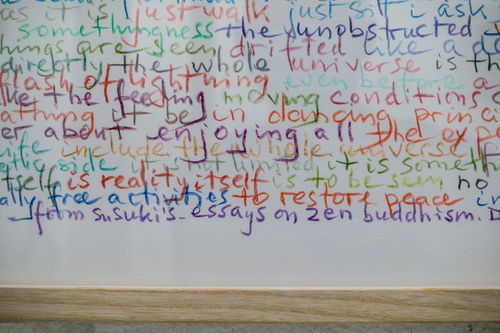 as it is just walk just sit i ask
somethingness the unobstructed
things are seen drifted like a
directly the whole universe is th
flash of lightning even before a
like the feeling moving conditions
athing it be in dancing
er about enjoying all the exp
life include the whole universe
side it is not limited it is someth
itself is reality itself is to be seen no
ally free activities to restore peace in
from susuki's essays on zen buddhism. D